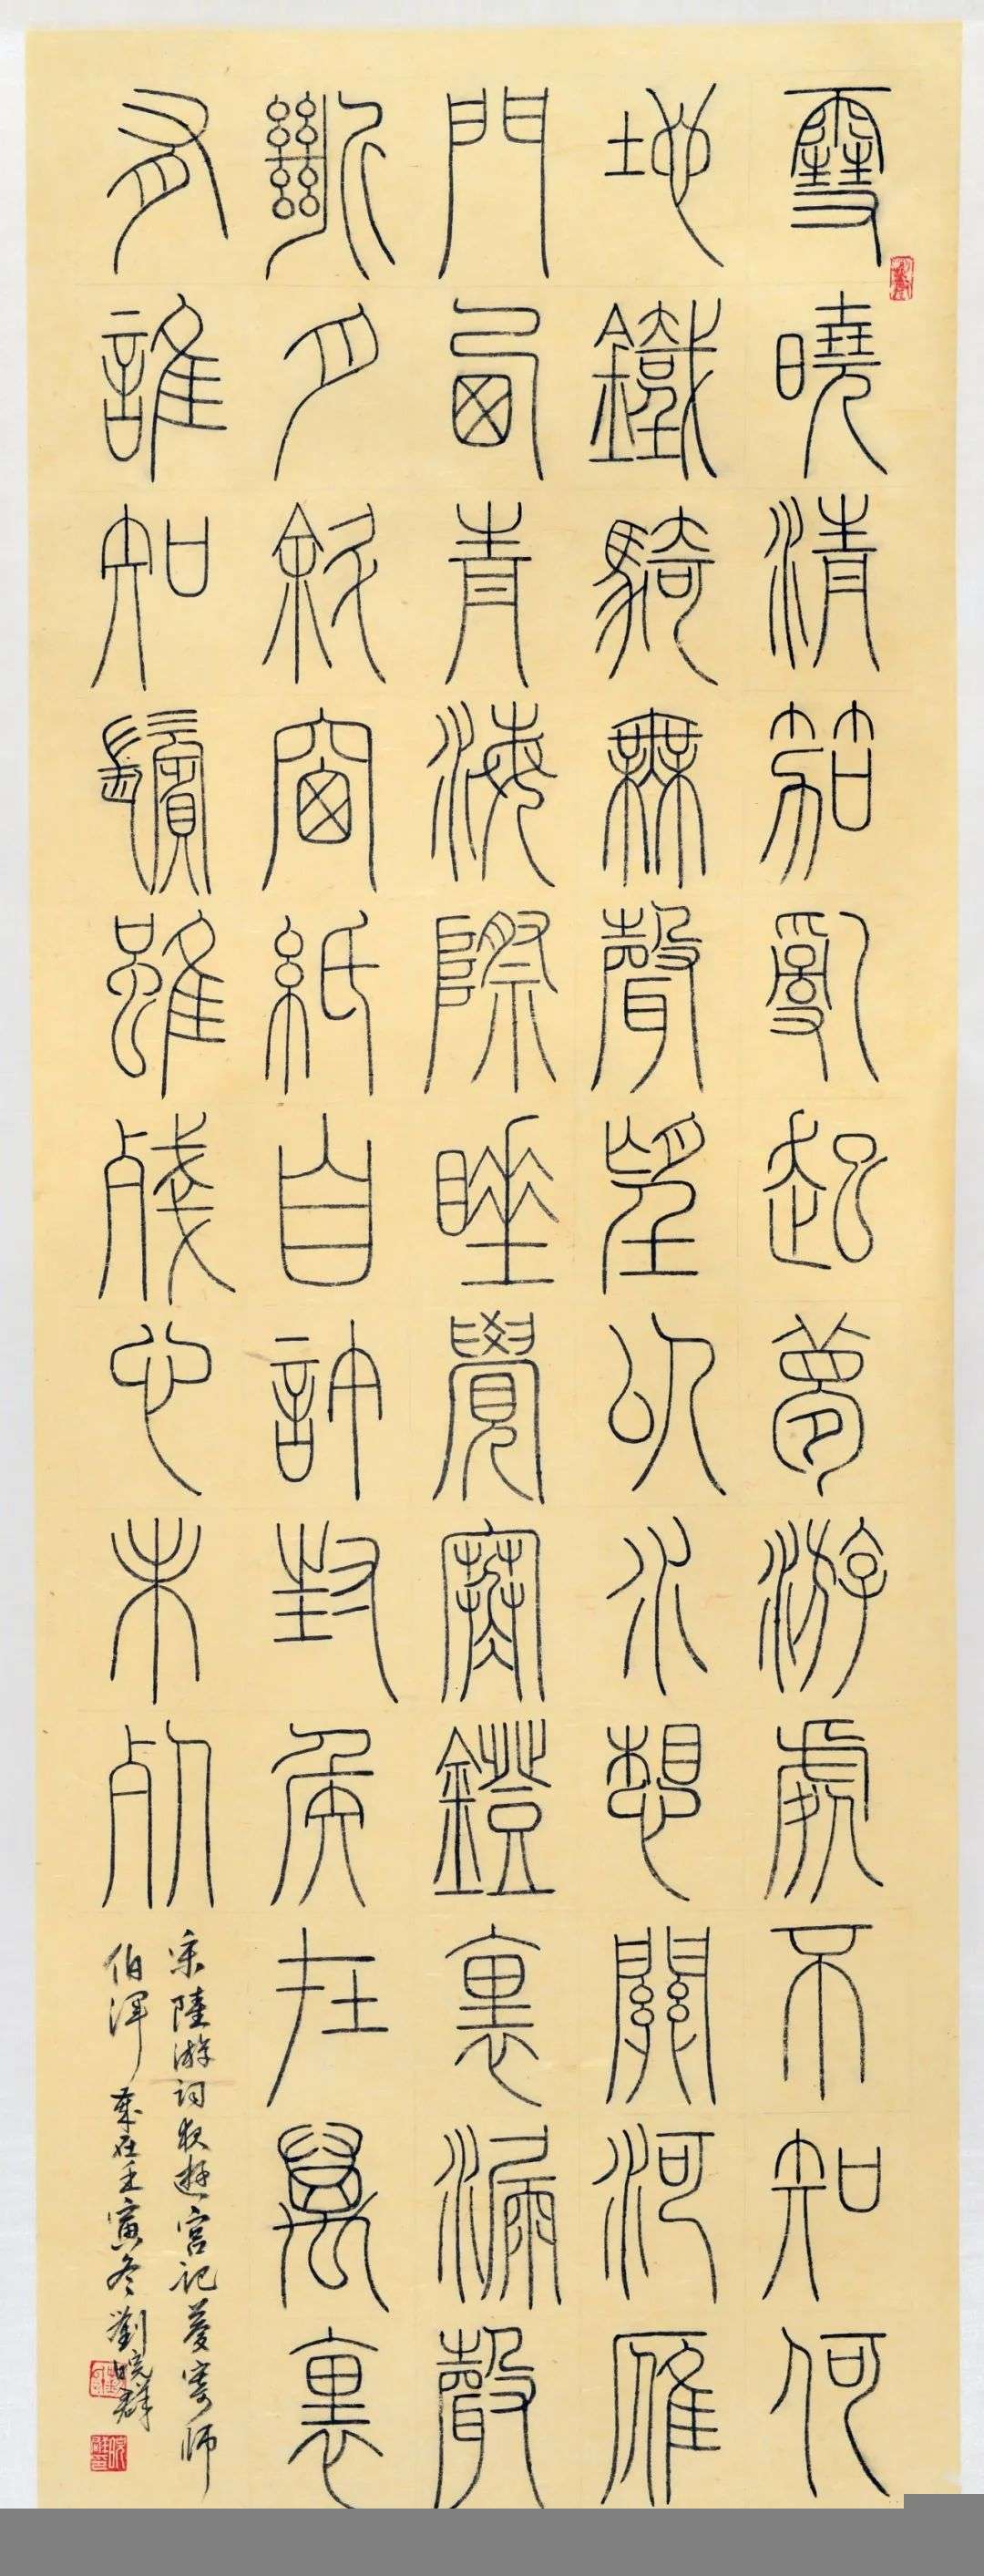 雪曉清笳亂起夢游處不知何
地鐵騎無聲望似水想關河雁
門西青海際睡覺寒鐙裏漏聲
斷月斜窗紙自許封侯在萬裏
有誰知鬢雖殘心未死
宋陸游詞夜遊宮記夢寄師
伯渾 歲在壬寅冬劉曉群